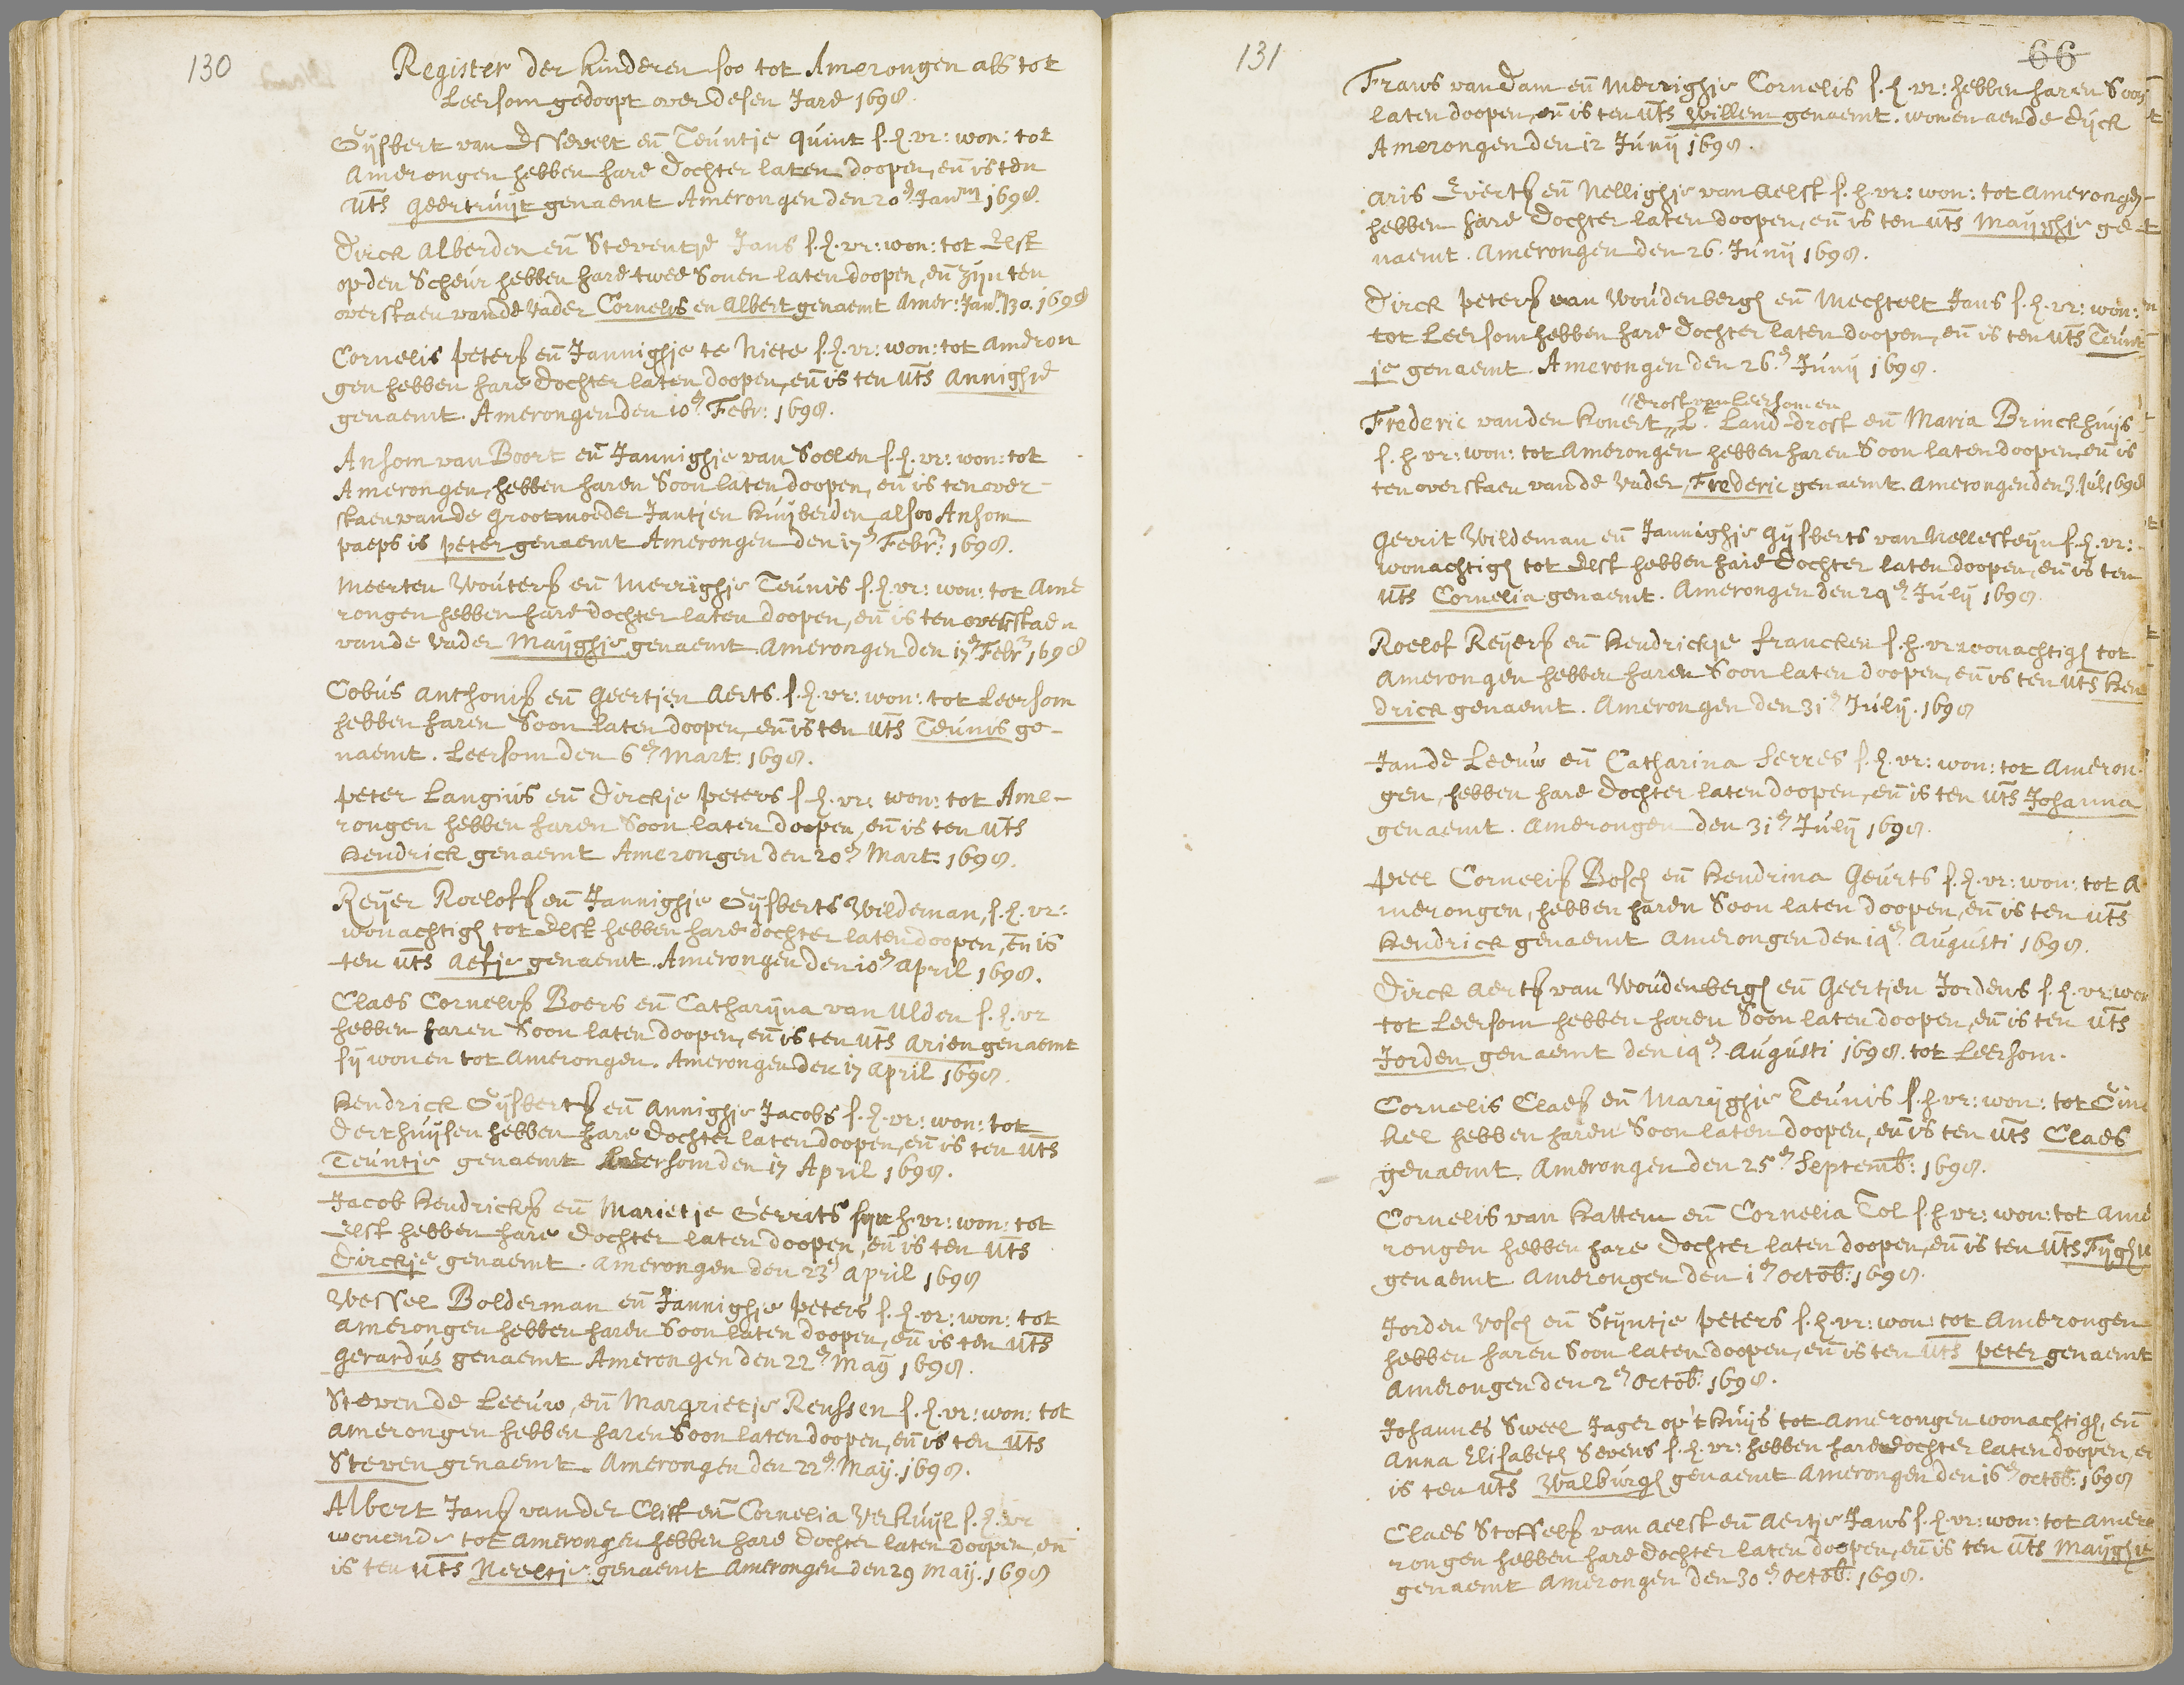 130
Register der kinderen soo tot Amerongen als tot
Leersom gedoopt over desen Jare 1698.
Gijsbert van Essevelt eñ Teuntje quint s. h. vr: won: tot
Amerongen hebben hare dochter laten doopen, eñ is ten
uts Geertruijt genaemt Amerongen den 20 Jan 1698.
Dirck Alberden eñ Steventje Jans s. h. vr: won: tot Elst
op den Scheur hebben hare twee Sonen laten doopen, eñ zijn ten
overstaen van de vader Cornelis en Albert genaemt Amer: Jan 30. 1698
Cornelis peters eñ Jannighje te Niete s. h. vr: won: tot Ameron
gen hebben hare dochter laten doopen, eñ is ten uts Annighje
genaemt. Amerongen den 10 Febr: 1698.
Ansom van Boort eñ Jannighje van Soelen s. h. vr: won: tot
Amerongen, hebben haren Soon laten doopen, eñ is ten over-
staen van de Grootmoeder Jantjen kuijberden, alsoo Ansom
paeps is peter genaemt Amerongen den 17 Febr: 1698.
Meerten Wouters eñ Merrighje Teunis s. h. vr: won: tot Ame
rongen hebben hare dochter laten doopen, eñ is ten overstaen
van de vader Maijghje genaemt Amerongen den 17 Febr 1698
Cobus Anthonis eñ Geertjen Aerts. s. h. vr: won: tot Leersom
hebben haren Soon laten doopen, eñ is ten uts Teunis ge-
naemt. Leersom den 6 Mart: 1698.
Peter Langius eñ Dirckje Peters s. h. vr: won: tot Ame-
rongen hebben haren Soon laten doopen, eñ is ten uts
Hendrick genaemt Amerongen den 20 Mart: 1698.
Reijer Roelofs eñ Jannighje Gijsberts Wildeman, s. h. vr:
wonachtigh tot Elst hebben hare dochter laten doopen, eñ is
ten uts Aefje genaemt. Amerongen den 10 April 1698.
Claes Cornelis Boers eñ Catharijna van Ulden s. h. vr
hebben haren Soon laten doopen, eñ is ten uts Arien genaemt
sij wonen tot Amerongen. Amerongen den 17 April 1698.
Hendrick Gijsberts eñ Annighje Jacobs s. h. vr: won: tot
Derthuijsen hebben hare dochter laten doopen, eñ is ten uts
Teuntje genaemt Leersom den 17 April 1698.
Jacob Hendricks eñ Marietje Gerrits sijn h. vr: won: tot
Elst hebben hare dochter laten doopen, eñ is ten uts
Dirckje genaemt. Amerongen den 23 April 1698
Wessel Bolderman eñ Jannighje Peters s. h. vr: won: tot
Amerongen hebben haren Soon laten doopen, eñ is ten uts
Gerardus genaemt Amerongen den 22 Maij 1698.
Steven de Leeuw, eñ Margrietje Renssen s. h. vr: won: tot
Amerongen hebben haren Soon laten doopen, eñ is ten uts
Steven genaemt. Amerongen den 22 Maij. 1698.
Albert Jans van der Cliff eñ Cornelia Verkuijl s. h. vr
wonende tot Amerongen hebben hare dochter laten doopen, eñ
is ten uts Neeltje genaemt Amerongen den 29 Maij. 1698
131
66
Frans van Dam eñ Merrighje Cornelis s. h. vr: hebben haren Soon
laten doopen, eñ is ten uts Willem genaemt. wonen aen de dijck
Amerongen den 12 Junij 1698.
Aris Everts eñ Nellighje van Aelst s. h. vr: won: tot Amerongen
hebben hare dochter laten doopen, eñ is ten uts Maijghje ge-
naemt. Amerongen den 26. Junij 1698.
Dirck Peters van Woudenbergh eñ Mechtelt Jans s. h. vr: won:
tot Leersom hebben hare dochter laten doopen, eñ is ten uts Teunt
je genaemt. Amerongen den 26. Junij 1698.
"drost van Leersom en
Frederic van den Honert, " L. Land-drost eñ Maria Brinckhuijs
s. h. vr: won: tot Amerongen hebben haren Soon laten doopen, eñ is
ten overstaen van de Vader, Frederic genaemt. Amerongen den 3. Jul. 1698
Gerrit Wildeman eñ Jannighje Gijsberts van Nellesteijn s. h. vr:
wonachtigh tot Elst hebben hare Dochter laten doopen, eñ is ten
uts Cornelia genaemt. Amerongen den 24 Julij 1698.
Roelof Reijers eñ Hendrickje francken s. h. vr wonachtigh tot
Amerongen hebben haren Soon laten doopen, eñ is ten uts Hen
drick genaemt. Amerongen den 31 Julij. 1698
Jan de Leeuw eñ Catharina Serres s. h. vr: won: tot Ameron-
gen, hebben hare Dochter laten doopen, eñ is ten uts Johanna
genaemt. Amerongen den 31 Julij 1698.
Peel Cornelis Bosch eñ Hendrina Geurts s. h. vr: won: tot A
merongen, hebben haren Soon laten doopen, eñ is ten uts
Hendrick genaemt Amerongen den 14 Augusti 1698.
Dirck Aerts van Woudenbergh eñ Geertjen Jordens s. h. vr: won
tot Leersom hebben haren Soon laten doopen, eñ is ten uts
Jorden genaemt den 14 Augusti 1698. tot Leersom.
Cornelis Claes eñ Marijghje Teunis s. h. vr: won: tot Gin
kel hebben haren Soon laten doopen, eñ is ten uts Claes
genaemt. Amerongen den 25 Septemb: 1698.
Cornelis van Hattem eñ Cornelia Tol s. h. vr: won: tot Ame
rongen hebben hare dochter laten doopen, eñ is ten uts Fijghje
genaemt Amerongen den 1 Octob: 1698.
Jorden Vosch eñ Stijntje Peters s. h. vr: won: tot Amerongen
hebben haren Soon laten doopen, eñ is ten uts Peter genaemt
Amerongen den 2 Octob: 1698.
Johannes Sweel Jager op't Huijs tot Amerongen wonachtigh, eñ
Anna Elisabeth Sevens s. h. vr: hebben hare dochter laten doopen, en
is ten uts Walburgh genaemt Amerongen den 16 Octob: 1698
Claes Stoffels van Aelst eñ Aertje Jans s. h. vr: won: tot Ame
rongen hebben hare dochter laten doopen, eñ is ten uts Maijghje
genaemt Amerongen den 30 Octob: 1698.